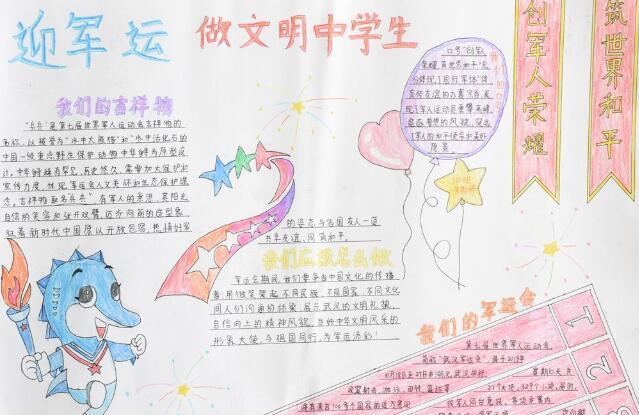 迎军运
做文明中学生
创军人荣耀
筑世界和平
我们的吉祥物
"兵兵"是第七届世界军人运动会吉祥物的
名称,以被誉为"水中大熊猫"和"水中活化石的
中国一级重点野生保护动物中华鲟为原型设
计。中华鲟稀有罕见,历史悠久,需要加大保护和
宣传力度,体现军运会人文关怀和生态保护理
念。吉祥物取名兵兵,有军人的意思,其阳光
自信的笑容和张开双臂,迈步向前的造型象
征着新时代中国原以开放包容,热情好客
的姿态与各国友人一道
共享友谊、同筑和平
我们的口号
口号"创军人
荣耀,筑世界和平"充
分体现了国际军体"体
育传友谊"的办赛宗旨,展
现了军人运动员勇攀高峰,
追逐梦想的风貌,突出
了军人的和平使命和美好
愿景。
我们应该怎么做
军运会期间,我们要争当中国文化的传播
者,用微笑架起不同民族、不同国家、不同文化
间人们沟通的桥梁,展示武汉的文明礼貌、
自信向上的精神风貌,当好中华文明风采的
形象大使,与祖国同行,为军运添彩!
我们的军运会
第七届世界军人运动会,
简称"武汉军运会",将于2019年
10月18日至27日在湖北武汉举行,
赛期10天,共
设置射击、游泳、田径、篮球等
27个大项、329个小项。届时,
将有来自100多个国家的近万名现
役军人同台竞技
1
2
3